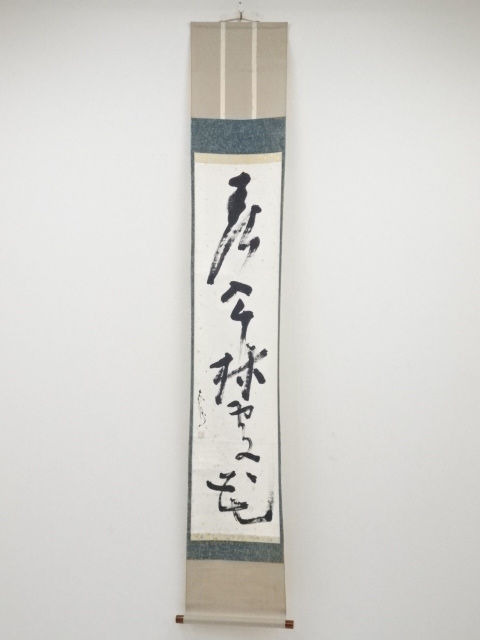 春入千林処々花